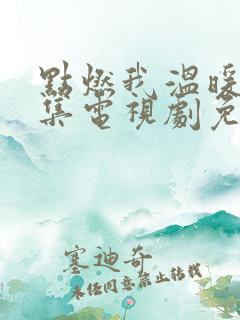 點燃我溫暖
集電視劇免
塞迪奇
未经同意禁止转载